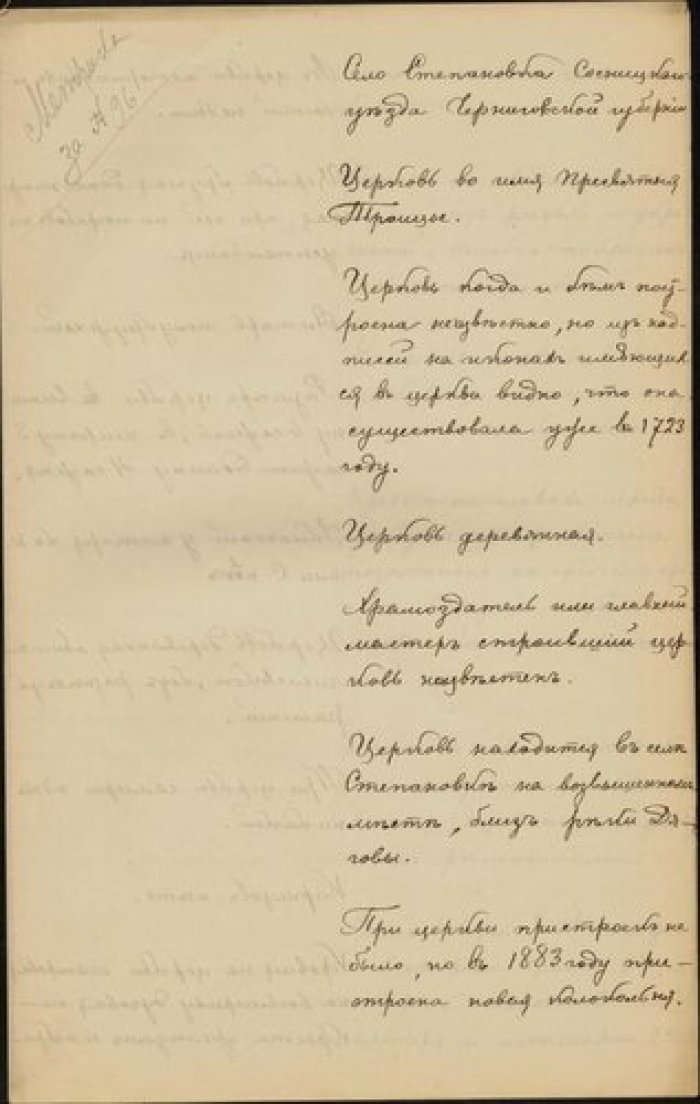 Метрика
за № 96
Село Степановка Сосницкаго
уѣзда Черниговской губерніи
Церковь во имя Пресвятыя
Троицы.
Церковь когда и кѣмъ пост-
роена неизвѣстно, но изъ над-
писей на иконахъ имѣющих
ся въ церкви видно, что она
существовала уже въ 1723
году.
Церковь деревянная.
Храмоздатель или главный
мастеръ строившій цер
ковь неизвѣстенъ.
Церковь находится въ селѣ
Степановкѣ на возвышенномъ
мѣстѣ, близъ рѣки Дя-
говы.
При церкви пристроекъ не
было, но въ 1883 году при-
строена новая колокольня.